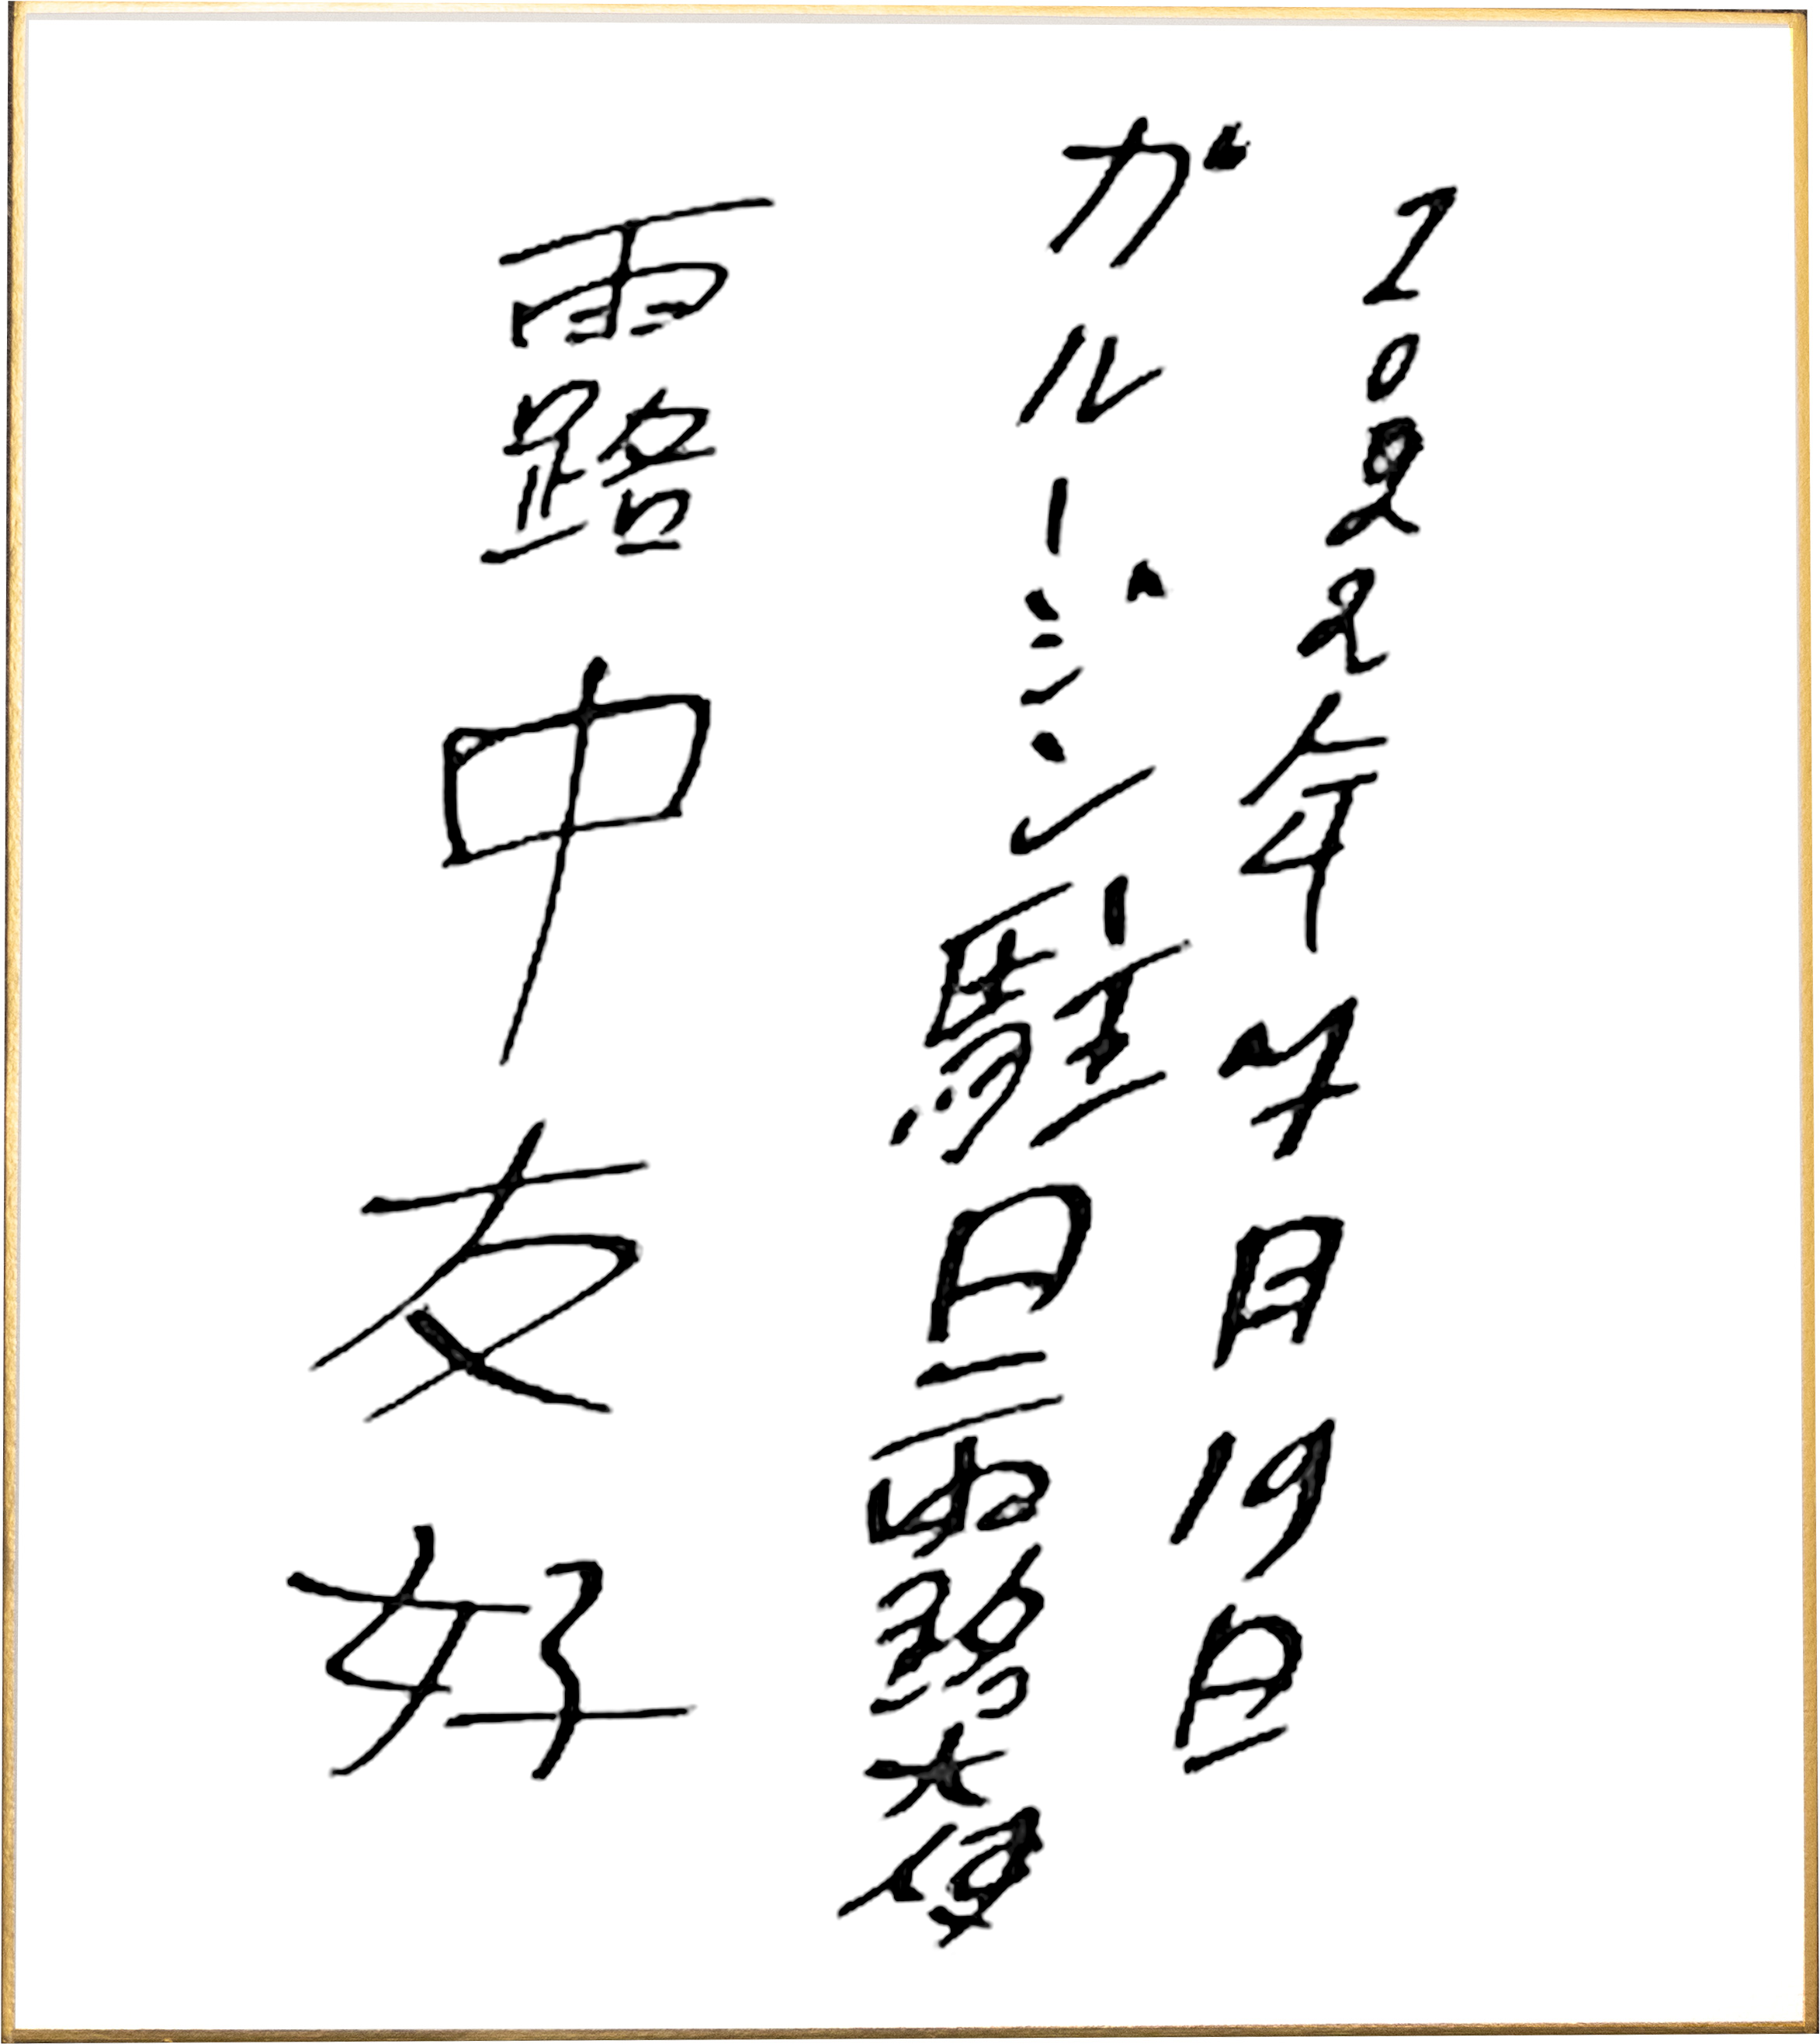 2022年4月19日
ガルージン駐日露大使
露中友好